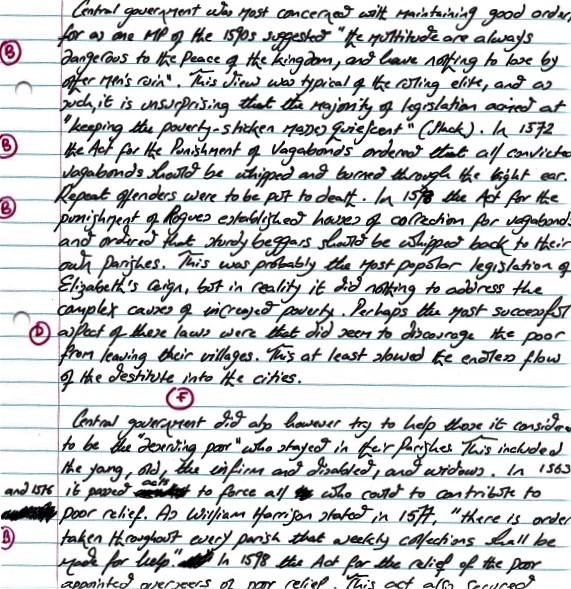 Central government was most concerned with maintaining good order,
for as one MP of the 1590s suggested "the multitude are always
B
dangerous to the peace of the kingdom, and have nothing to lose by
other men's ruin". This view was typical of the ruling elite, and as
such, it is unsurprising that the majority of legislation aimed at
"keeping the poverty-stricken masses quiescent" (Slack). In 1572
B
the Act for the Punishment of Vagabonds ordered that all convicted
vagabonds should be whipped and burned through the right ear.
Repeat offenders were to be put to death. In 1598 the Act for the
B
punishment of Rogues established houses of correction for vagabonds
and ordered that sturdy beggars should be whipped back to their
own parishes. This was probably the most popular legislation of
Elizabeth's reign, but in reality it did nothing to address the
complex causes of increased poverty. Perhaps the most successful
D
aspect of these laws were that did seem to discourage the poor
from leaving their villages. This at least slowed the endless flow
of the destitute into the cities.
F
Central government did also however try to help those it considered
to be the "deserving poor" who stayed in their parishes This included
the young, old, the infirm and disabled, and widows. In 1563
and 1576 it passed acts to force all who could to contribute to
poor relief. As William Harrison stated in 1577, "there is order
B
taken throughout every parish that weekly collections shall be
made for help" In 1598 the Act for the relief of the poor
appointed overseers of poor relief. This act also secured